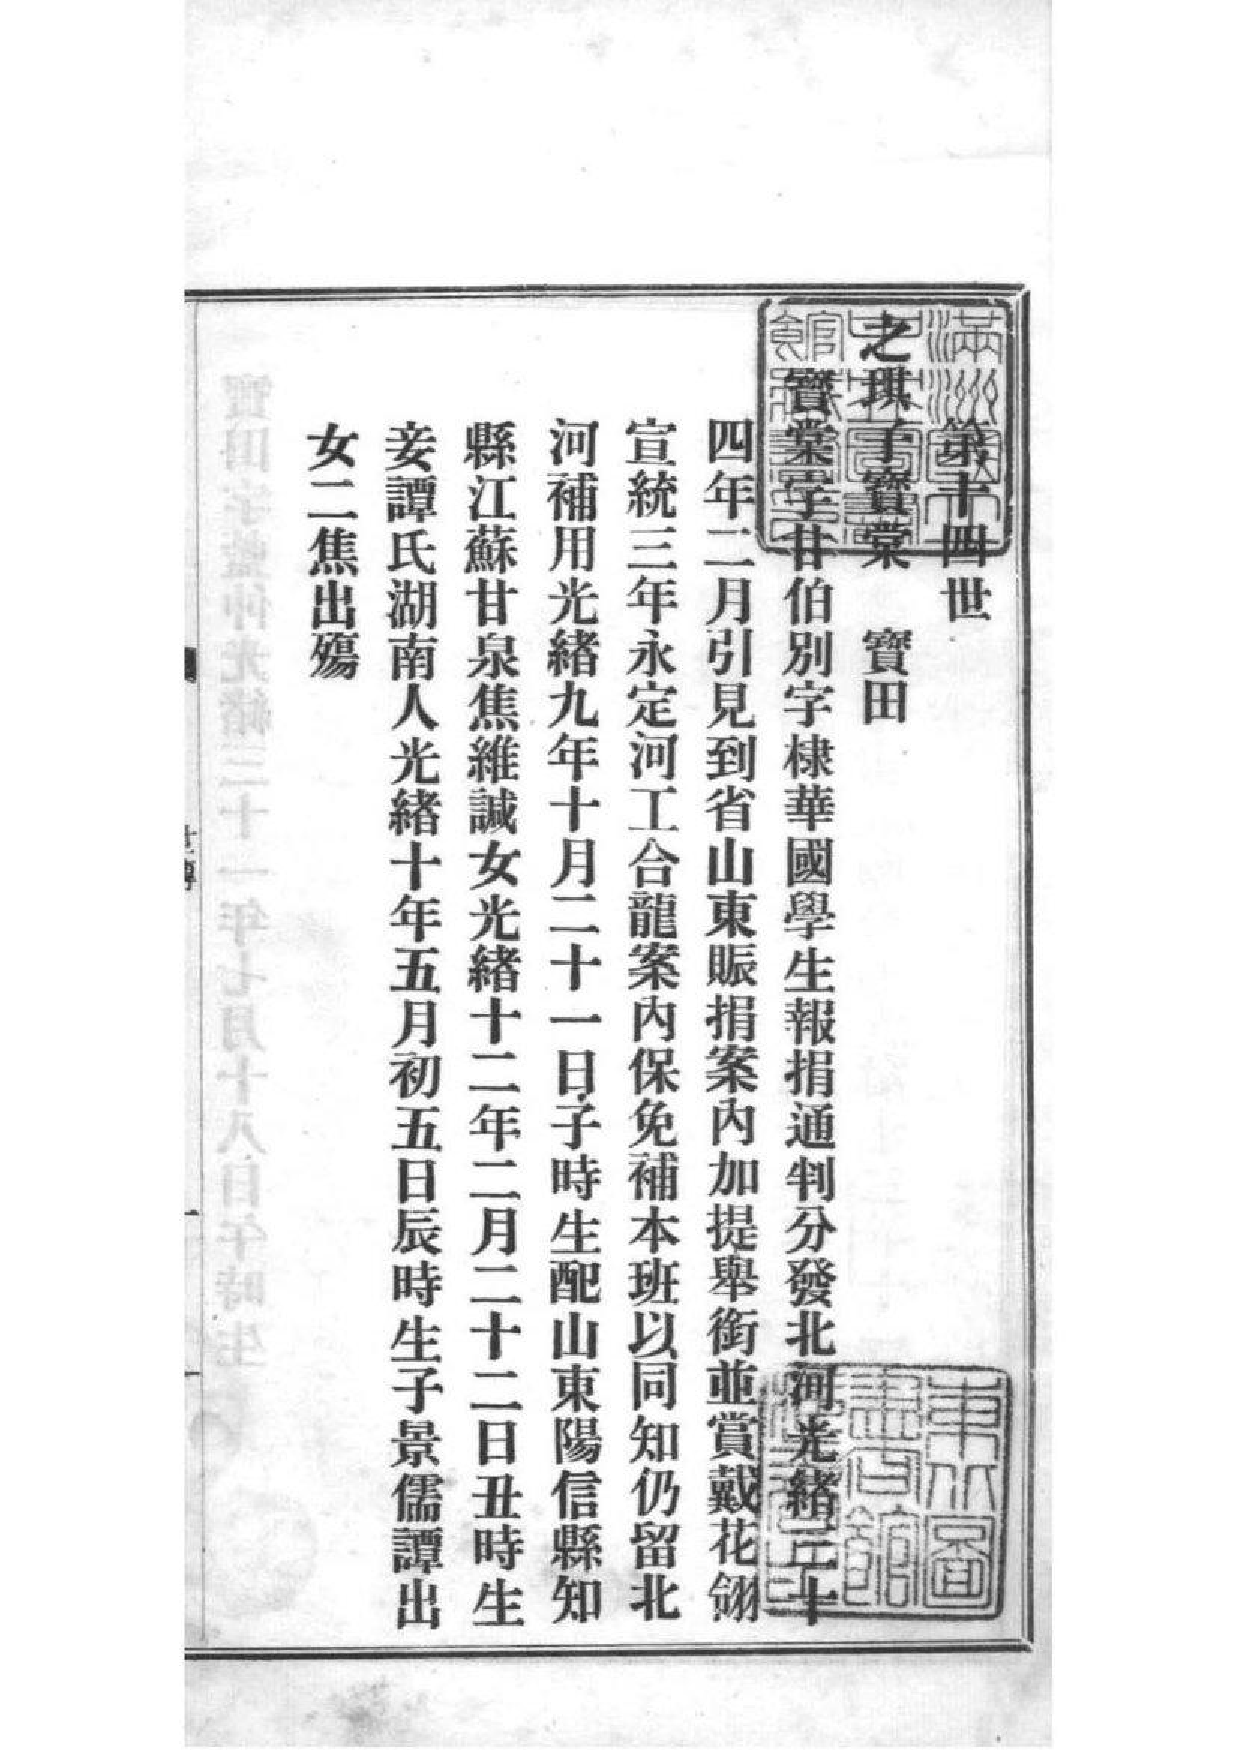 第十四世
之琪子寶棠　寶田
寶棠字甘伯別字棣華國學生報捐通判分發北河光緒三十
四年二月引見到省山東賑捐案內加提舉銜並賞戴花翎
宣統三年永定河工合龍案內保免補本班以同知仍留北
河補用光緒九年十月二十一日子時生配山東陽信縣知
縣江蘇甘泉焦維諴女光緒十二年二月二十二日丑時生
妾譚氏湖南人光緒十年五月初五日辰時生子景儒譚出
女二焦出殤